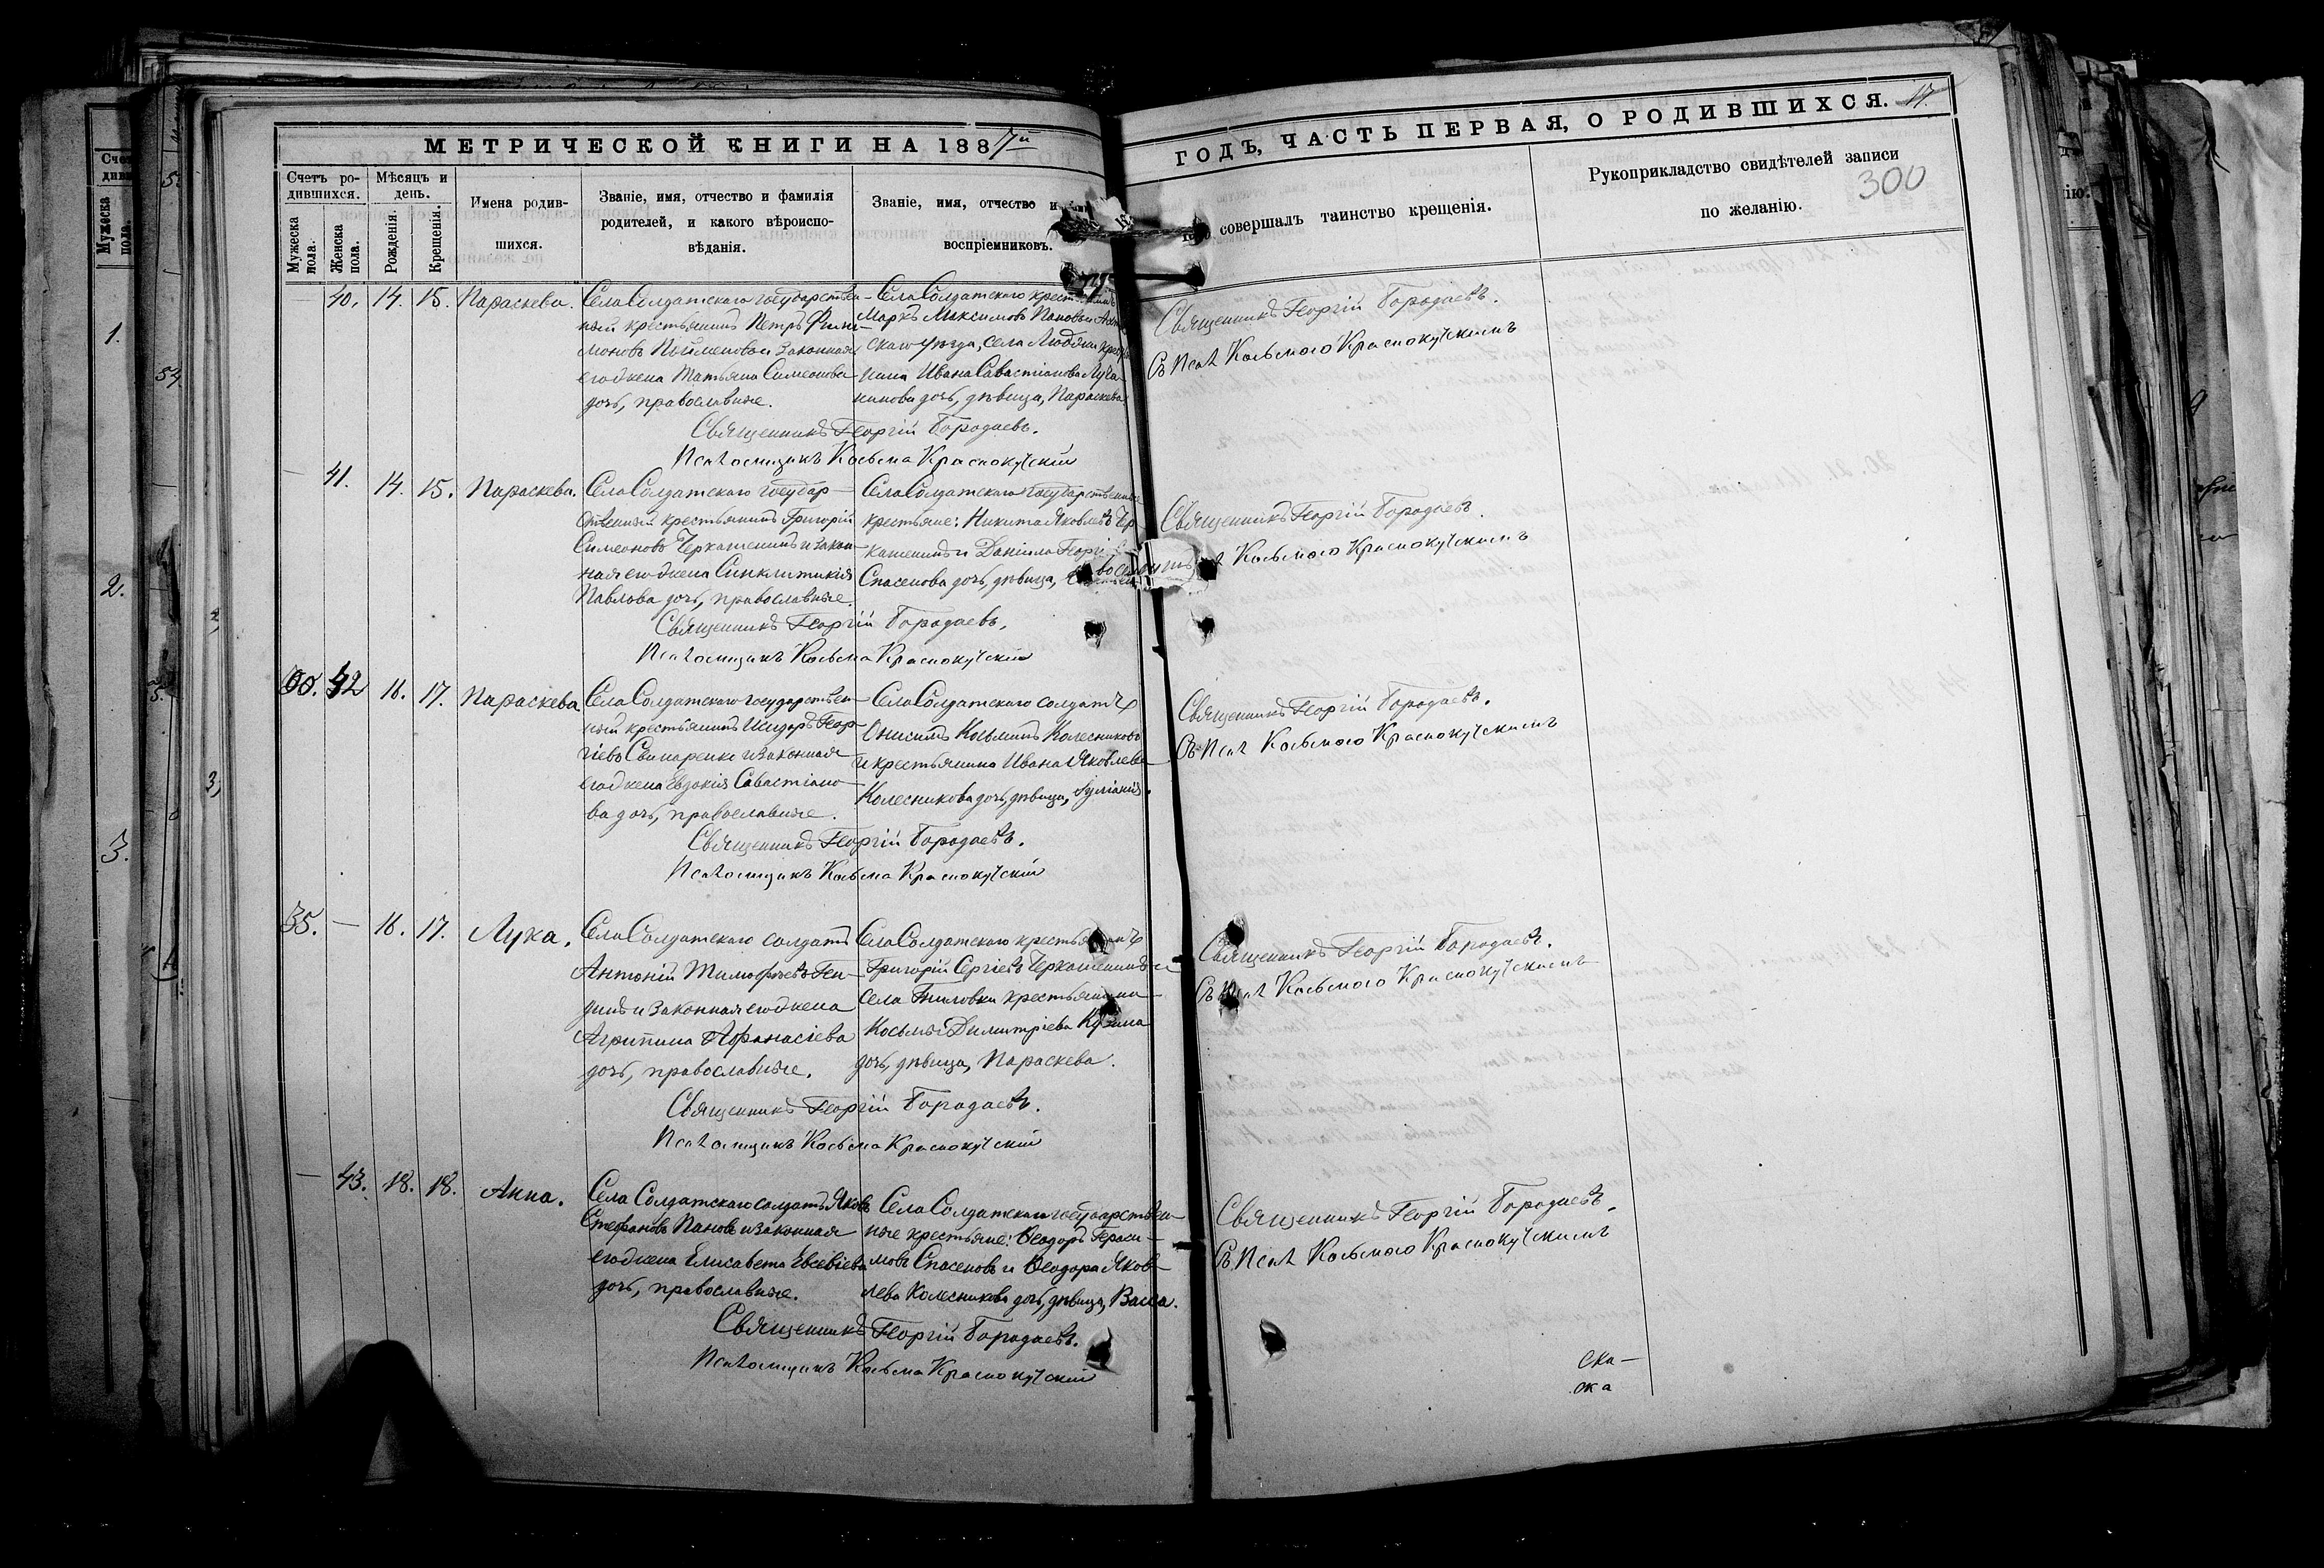 МЕТРИЧЕСКОЙ КНИГИ НА 1887й
ГОДЪ, ЧАСТЬ ПЕРВАЯ, О РОДИВШИХСЯ. 17.
300
Счетъ родившихся.
Мужеска пола.
Женска пола.
Мѣсяцъ и день.
Рожденія.
Крещенія.
Имена родив-
шихся.
Званіе, имя, отчество и фамилія
родителей, и какого вѣроиспо-
вѣданія.
Званіе, имя, отчество и
воспріемниковъ.
совершалъ таинство крещенія.
Рукоприкладство свидѣтелей записи
по желанію.
— 40. 14. 15. Параскева.
Села Солдатскаго государствен-
ный крестьянинъ Петръ Фили-
моновъ и законная
его жена Татьяна Симеонова
дочь, православные.
Села Солдатскаго
Маркъ Максимовъ Пановъ и
скаго уѣзда, села
нина Ивана Савастіанова
дочь, дѣвица, Параскева.
Священникъ Георгій Бородаевъ.
Съ Псал Косьмою Краснокутскимъ
Священникъ Георгій Бородаевъ.
Псаломщикъ Косьма Краснокутскій
— 41. 14. 15. Параскева.
Села Солдатскаго государ-
ственный крестьянинъ Григорій
Симеоновъ Черкашенинъ и закон-
ная его жена Синклитикія
Павлова дочь, православные.
Села Солдатскаго государственные
крестьяне: Никита Яковлевъ Чер-
кашенинъ и Даніила
Спасенова дочь, дѣвица,
Священникъ Георгій Бородаевъ.
Косьмою Краснокутскимъ
Священникъ Георгій Бородаевъ.
Псаломщикъ Косьма Краснокутскій
42 16. 17. Параскева
Села Солдатскаго государствен-
ный крестьянинъ Исидоръ Геор-
гіевъ и законная
его жена Евдокія Савастіано-
ва дочь, православные.
Села Солдатскаго солдатъ
Онисимъ Косьминъ Колесниковъ
и крестьянина Ивана Яковлева
Колесникова дочь, дѣвица,
Священникъ Георгій Бородаевъ.
Съ Псал Косьмою Краснокутскимъ
Священникъ Георгій Бородаевъ.
Псаломщикъ Косьма Краснокутскій
35. — 16. 17. Лука.
Села Солдатскаго солдатъ
Антоній Тимофеевъ
и законная его жена
Агрипина Афанасіева
дочь, православные.
Села Солдатскаго
Григорій Сергіевъ Черкашенинъ и
села крестьянина
Косьмы Димитріева
дочь, дѣвица, Параскева.
Священникъ Георгій Бородаевъ.
Съ Псал Косьмою Краснокутскимъ
Священникъ Георгій Бородаевъ.
Псаломщикъ Косьма Краснокутскій
— 43. 18. 18. Анна.
Села Солдатскаго солдатъ Яковъ
Стефановъ Пановъ и законная
его жена Елисавета Евсевіева
дочь, православные.
Села Солдатскаго государствен-
ные крестьяне: Ѳеодоръ Гераси-
мовъ Спасеновъ и Ѳеодора Яков-
лева Колесникова дочь, дѣвица, Васса.
Священникъ Георгій Бородаевъ.
Съ Псал Косьмою Краснокутскимъ
Священникъ Георгій Бородаевъ.
Псаломщикъ Косьма Краснокутскій
ска-